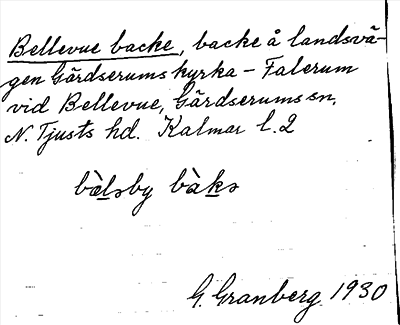 Bellevue backe, backe å landsvä-
gen Gärdserums kyrka - Falerum
vid Bellevue, Gärdserums sn,
N. Tjusts hd. Kalmar l. 2
bæ̀lsby bàkə
G. Granberg 1930